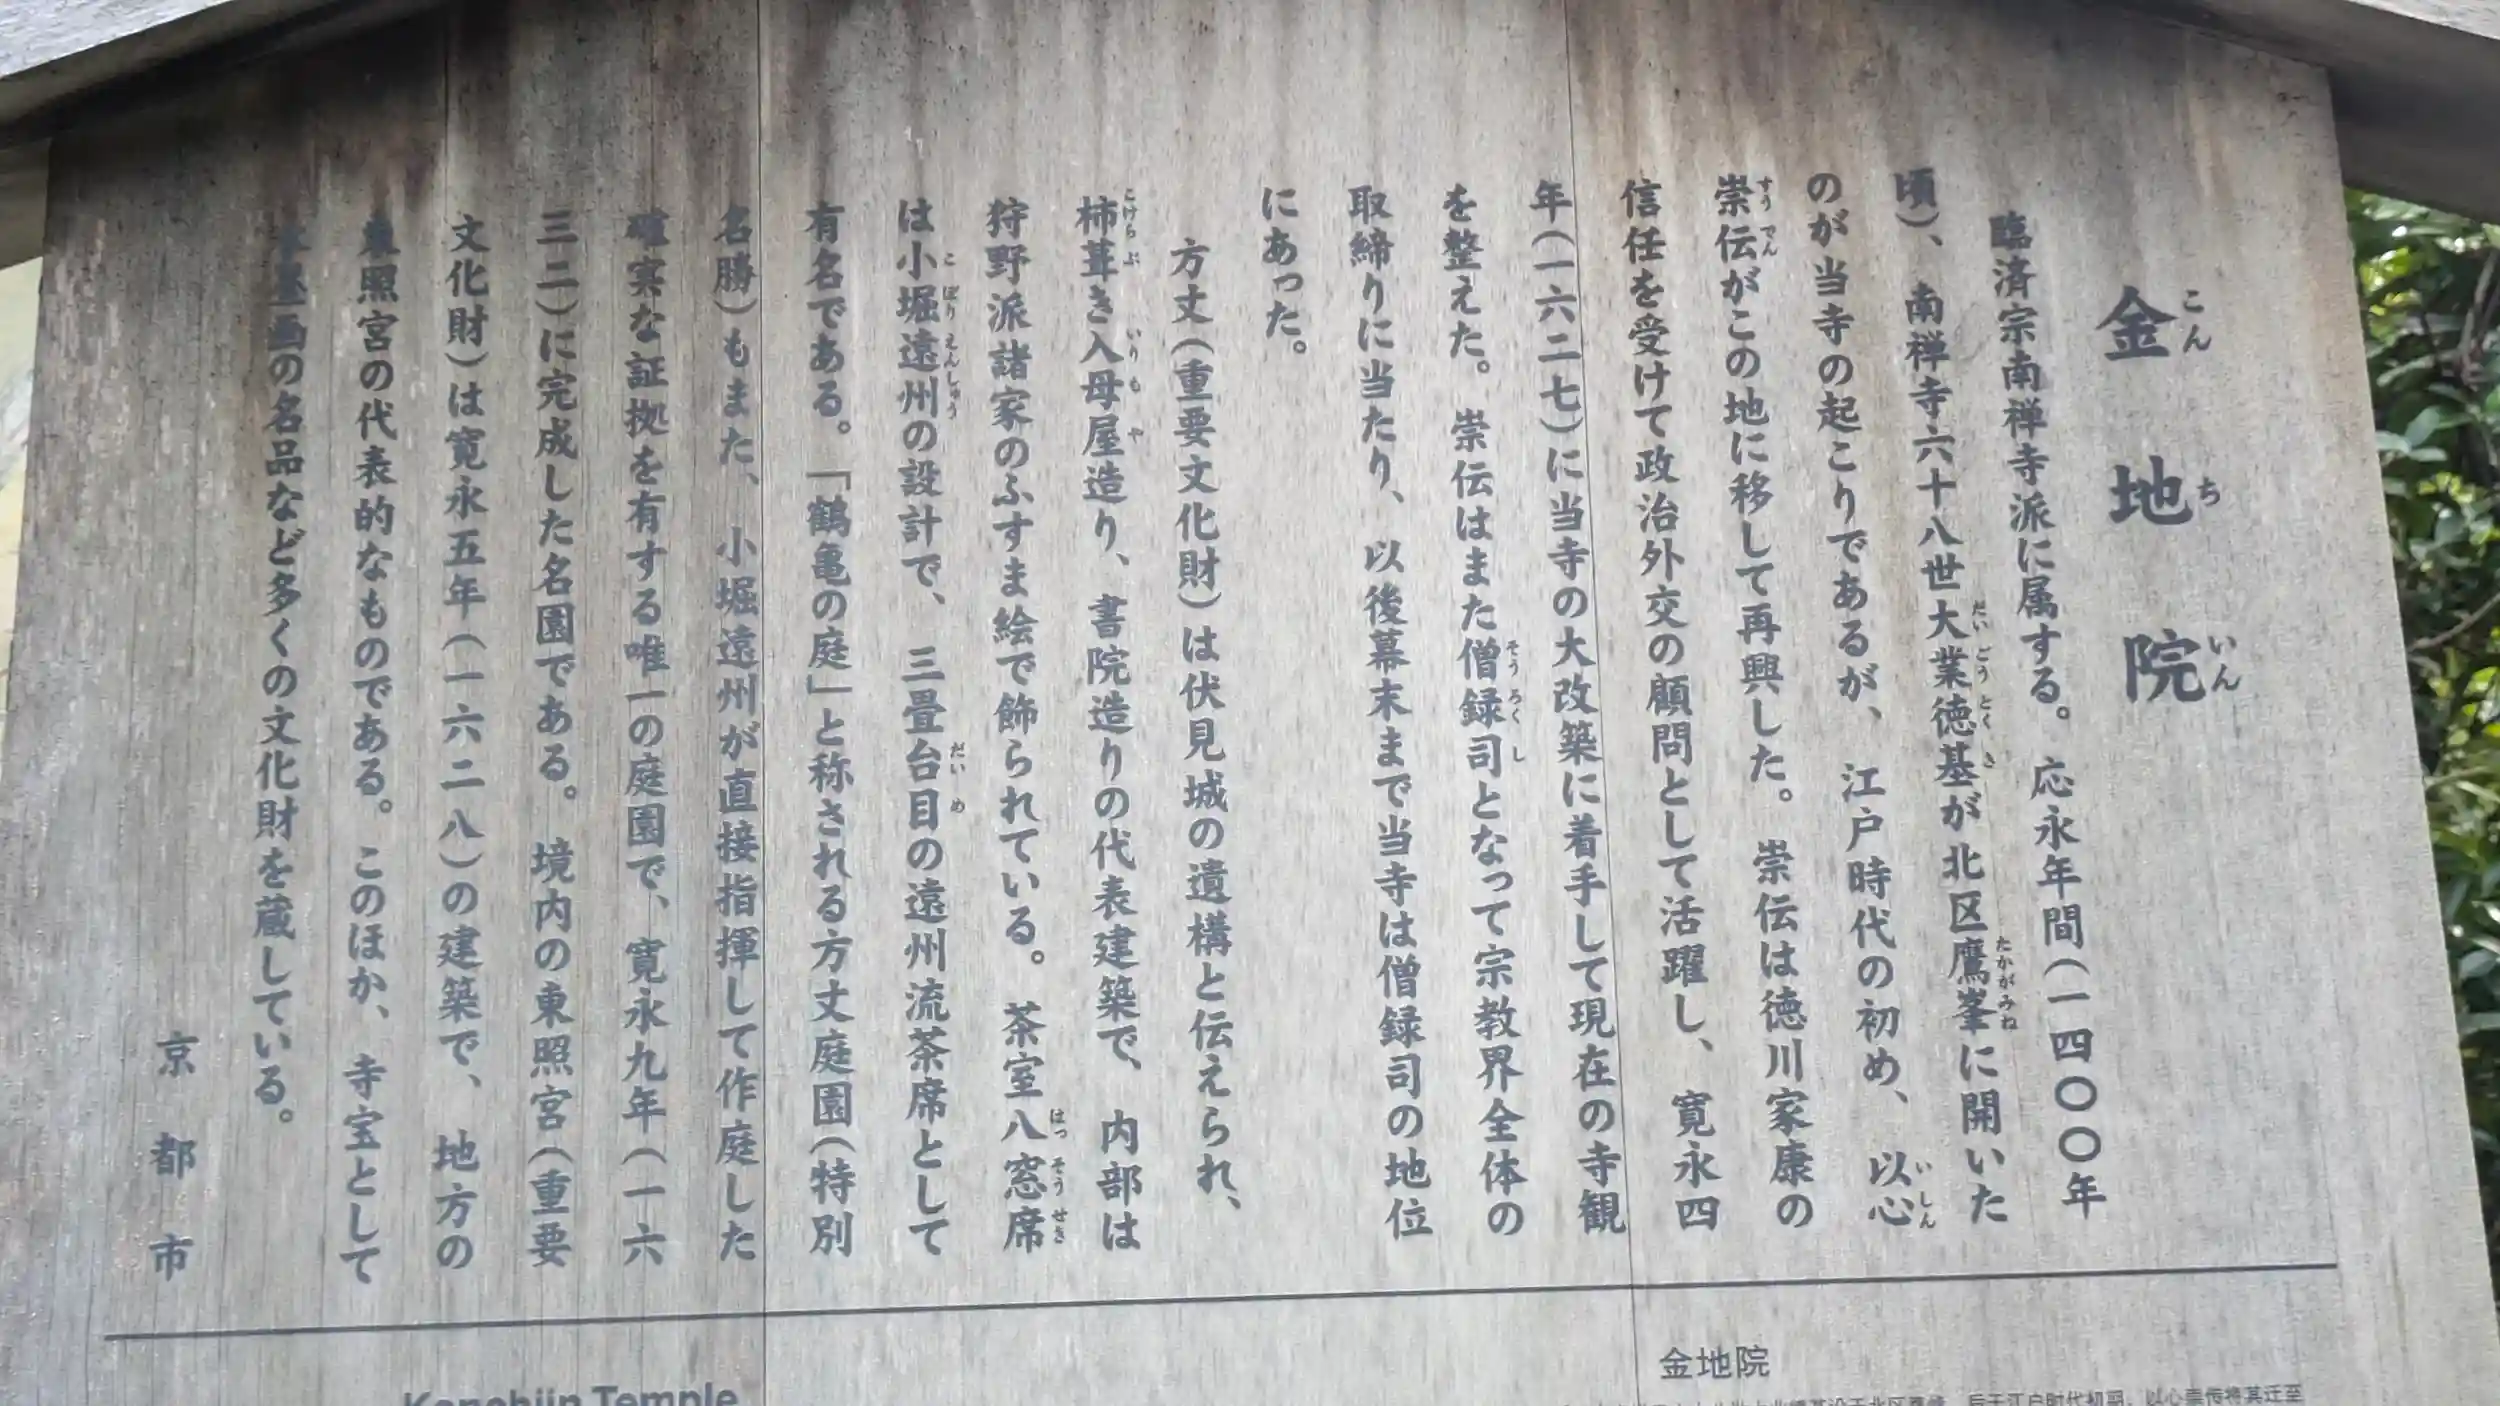 金地院
こんちいん
臨済宗南禅寺派に属する。応永年間(一四〇〇年
頃)、南禅寺六十八世大業徳基が北区鷹峯に開いた
だいごうとくき たかがみね
のが当寺の起こりであるが、江戸時代の初め、以心
いしん
崇伝がこの地に移して再興した。崇伝は徳川家康の
すうでん
信任を受けて政治外交の顧問として活躍し、寛永四
年(一六二七)に当寺の大改築に着手して現在の寺観
を整えた。崇伝はまた僧録司となって宗教界全体の
そうろくし
取締りに当たり、以後幕末まで当寺は僧録司の地位
にあった。
方丈(重要文化財)は伏見城の遺構と伝えられ、
杮葺き入母屋造り、書院造りの代表建築で、内部は
こけらぶ いりもや
狩野派諸家のふすま絵で飾られている。茶室八窓席
はっそうせき
は小堀遠州の設計で、三畳台目の遠州流茶席として
こぼりえんしゅう だいめ
有名である。「鶴亀の庭」と称される方丈庭園(特別
名勝)もまた、小堀遠州が直接指揮して作庭した
確実な証拠を有する唯一の庭園で、寛永九年(一六
三二)に完成した名園である。境内の東照宮(重要
文化財)は寛永五年(一六二八)の建築で、地方の
東照宮の代表的なものである。このほか、寺宝として
画の名品など多くの文化財を蔵している。
京都市
Konchiin Temple
金地院